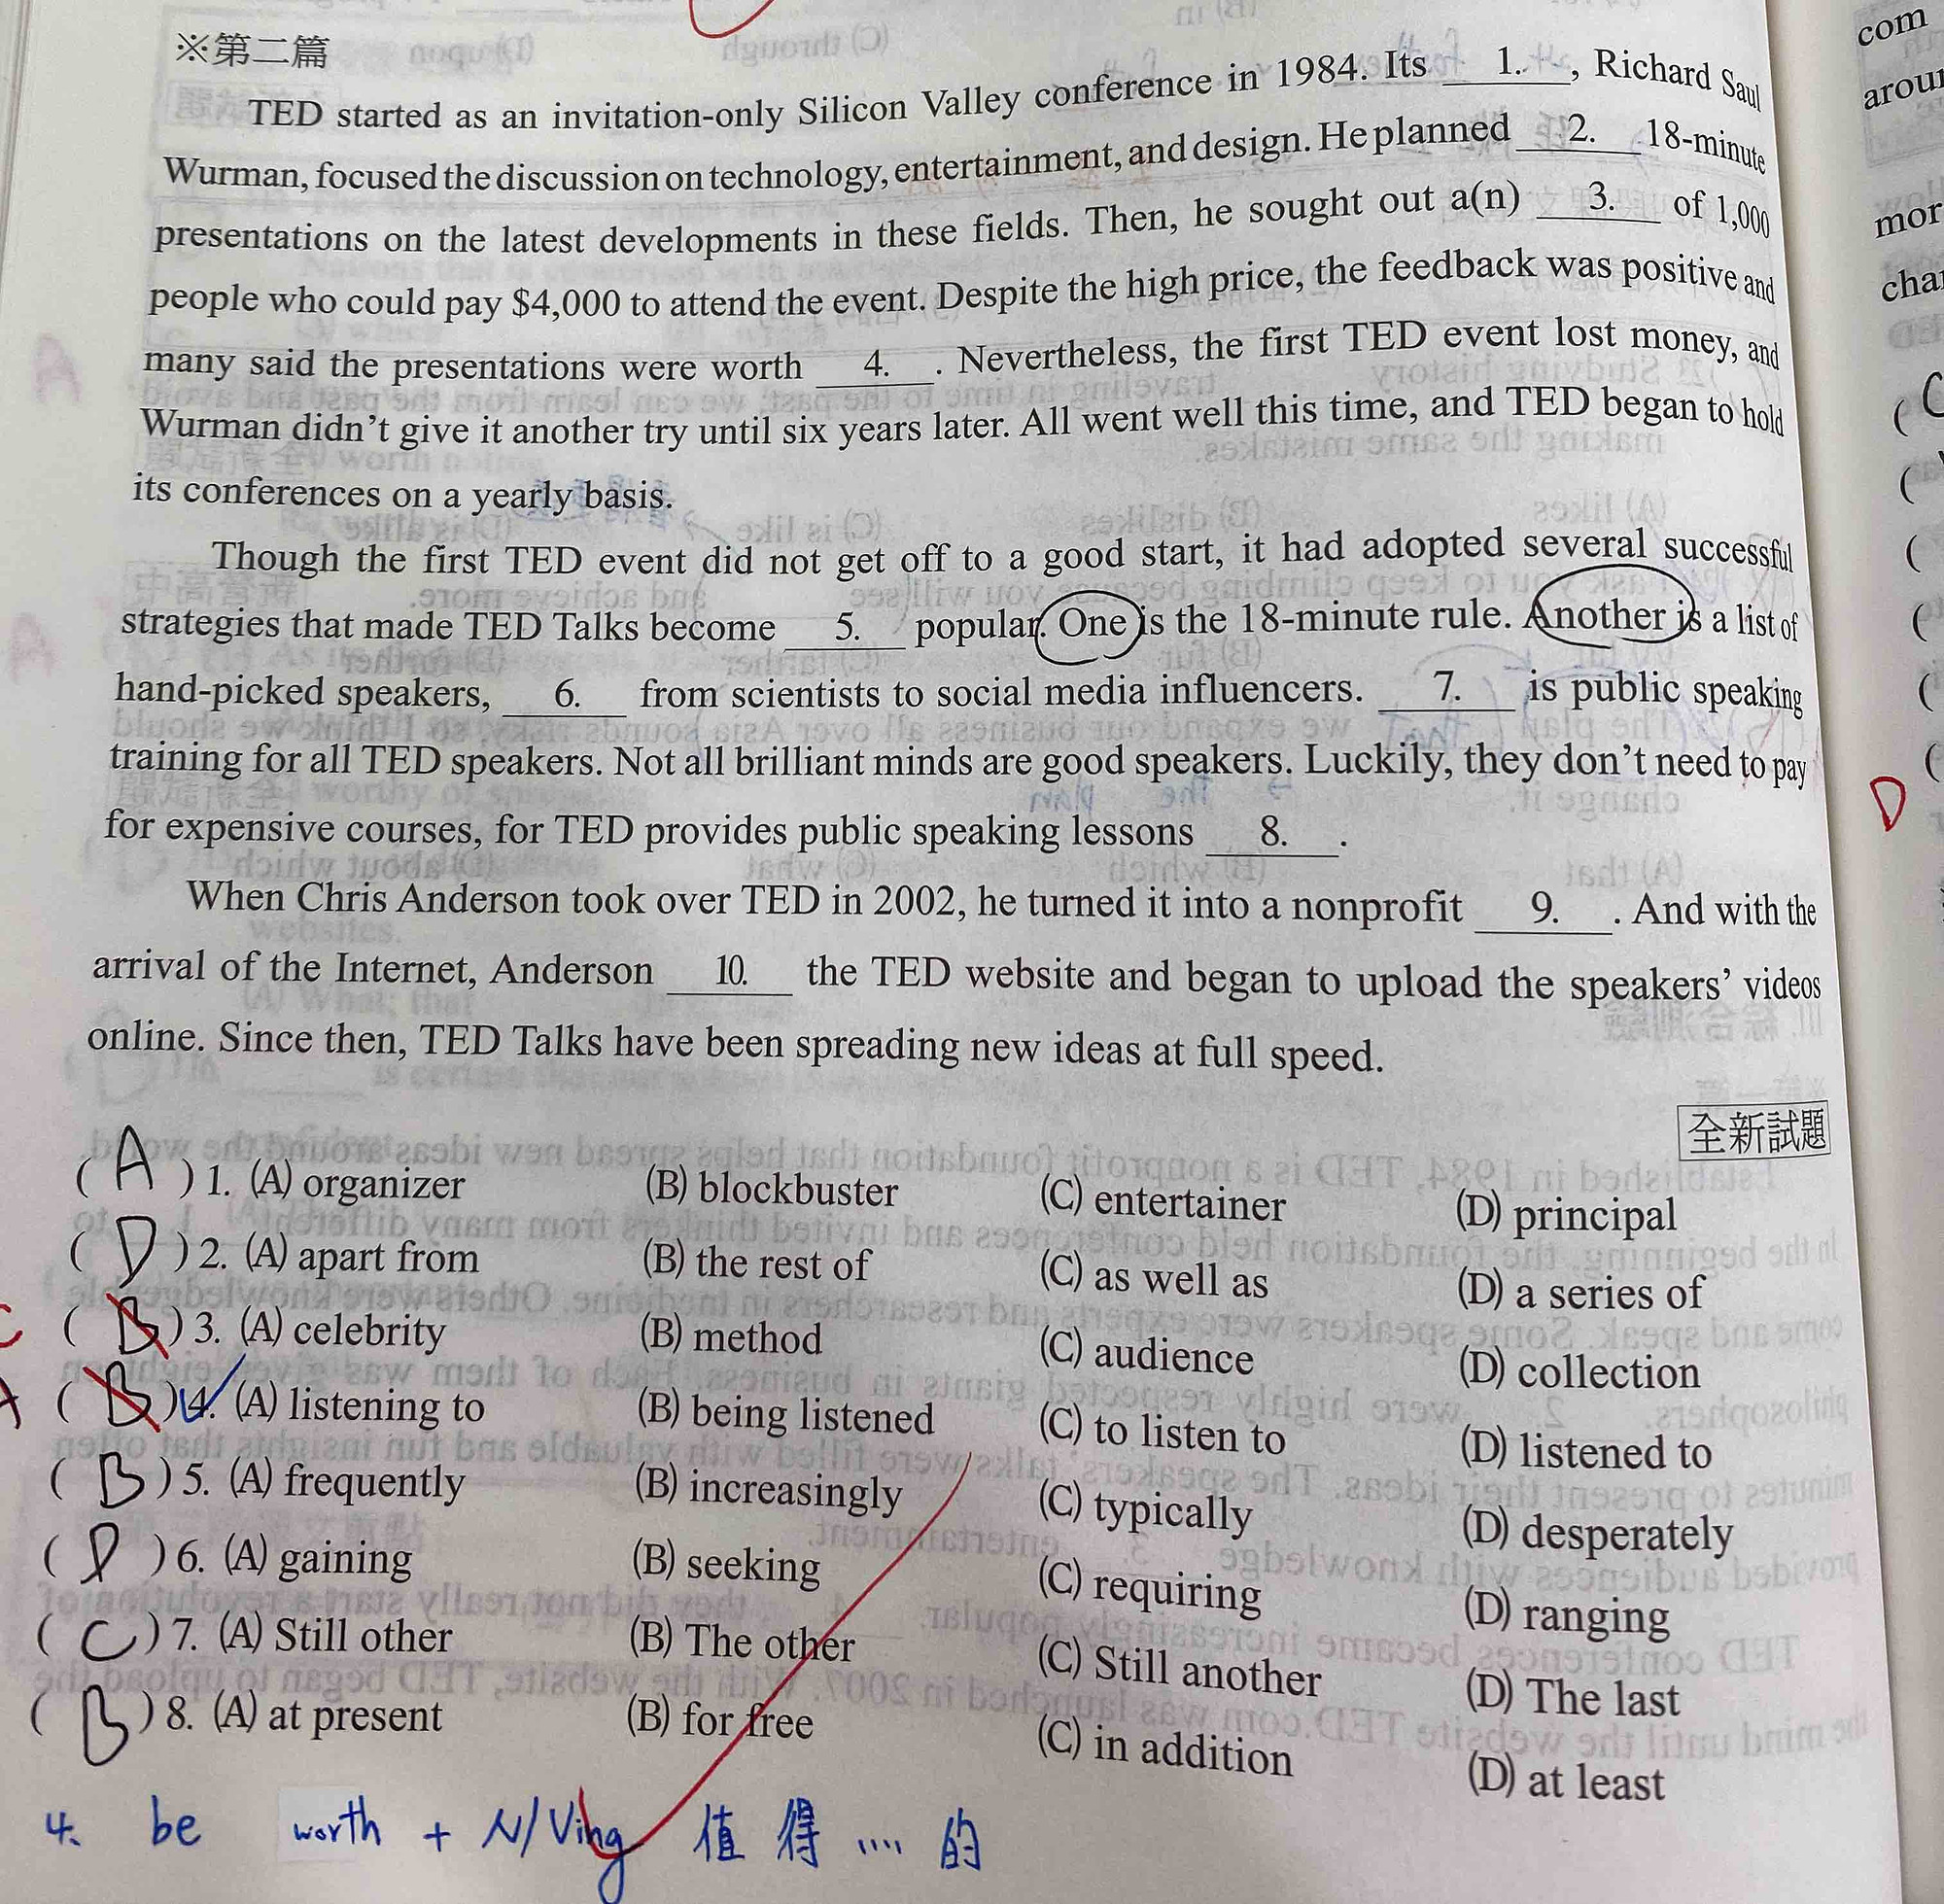 ※第二篇
TED started as an invitation-only Silicon Valley conference in 1984. Its 1. , Richard Saul
Wurman, focused the discussion on technology, entertainment, and design. He planned 2. 18-minute
presentations on the latest developments in these fields. Then, he sought out a(n) 3. of 1,000
people who could pay $4,000 to attend the event. Despite the high price, the feedback was positive and
many said the presentations were worth 4. . Nevertheless, the first TED event lost money, and
Wurman didn't give it another try until six years later. All went well this time, and TED began to hold
its conferences on a yearly basis.
Though the first TED event did not get off to a good start, it had adopted several successful
strategies that made TED Talks become 5. popular. One is the 18-minute rule. Another is a list of
hand-picked speakers, 6. from scientists to social media influencers. 7. is public speaking
training for all TED speakers. Not all brilliant minds are good speakers. Luckily, they don't need to pay
for expensive courses, for TED provides public speaking lessons 8. .
When Chris Anderson took over TED in 2002, he turned it into a nonprofit 9. . And with the
arrival of the Internet, Anderson 10. the TED website and began to upload the speakers' videos
online. Since then, TED Talks have been spreading new ideas at full speed.
全新試題
( A ) 1. (A) organizer (B) blockbuster (C) entertainer (D) principal
( D ) 2. (A) apart from (B) the rest of (C) as well as (D) a series of
C ( B ) 3. (A) celebrity (B) method (C) audience (D) collection
A ( B ) 4. (A) listening to (B) being listened (C) to listen to (D) listened to
( B ) 5. (A) frequently (B) increasingly (C) typically (D) desperately
( D ) 6. (A) gaining (B) seeking (C) requiring (D) ranging
( C ) 7. (A) Still other (B) The other (C) Still another (D) The last
( B ) 8. (A) at present (B) for free (C) in addition (D) at least
4. be worth + N/Ving 值得....的
com
arou
mor
cha
( C
D